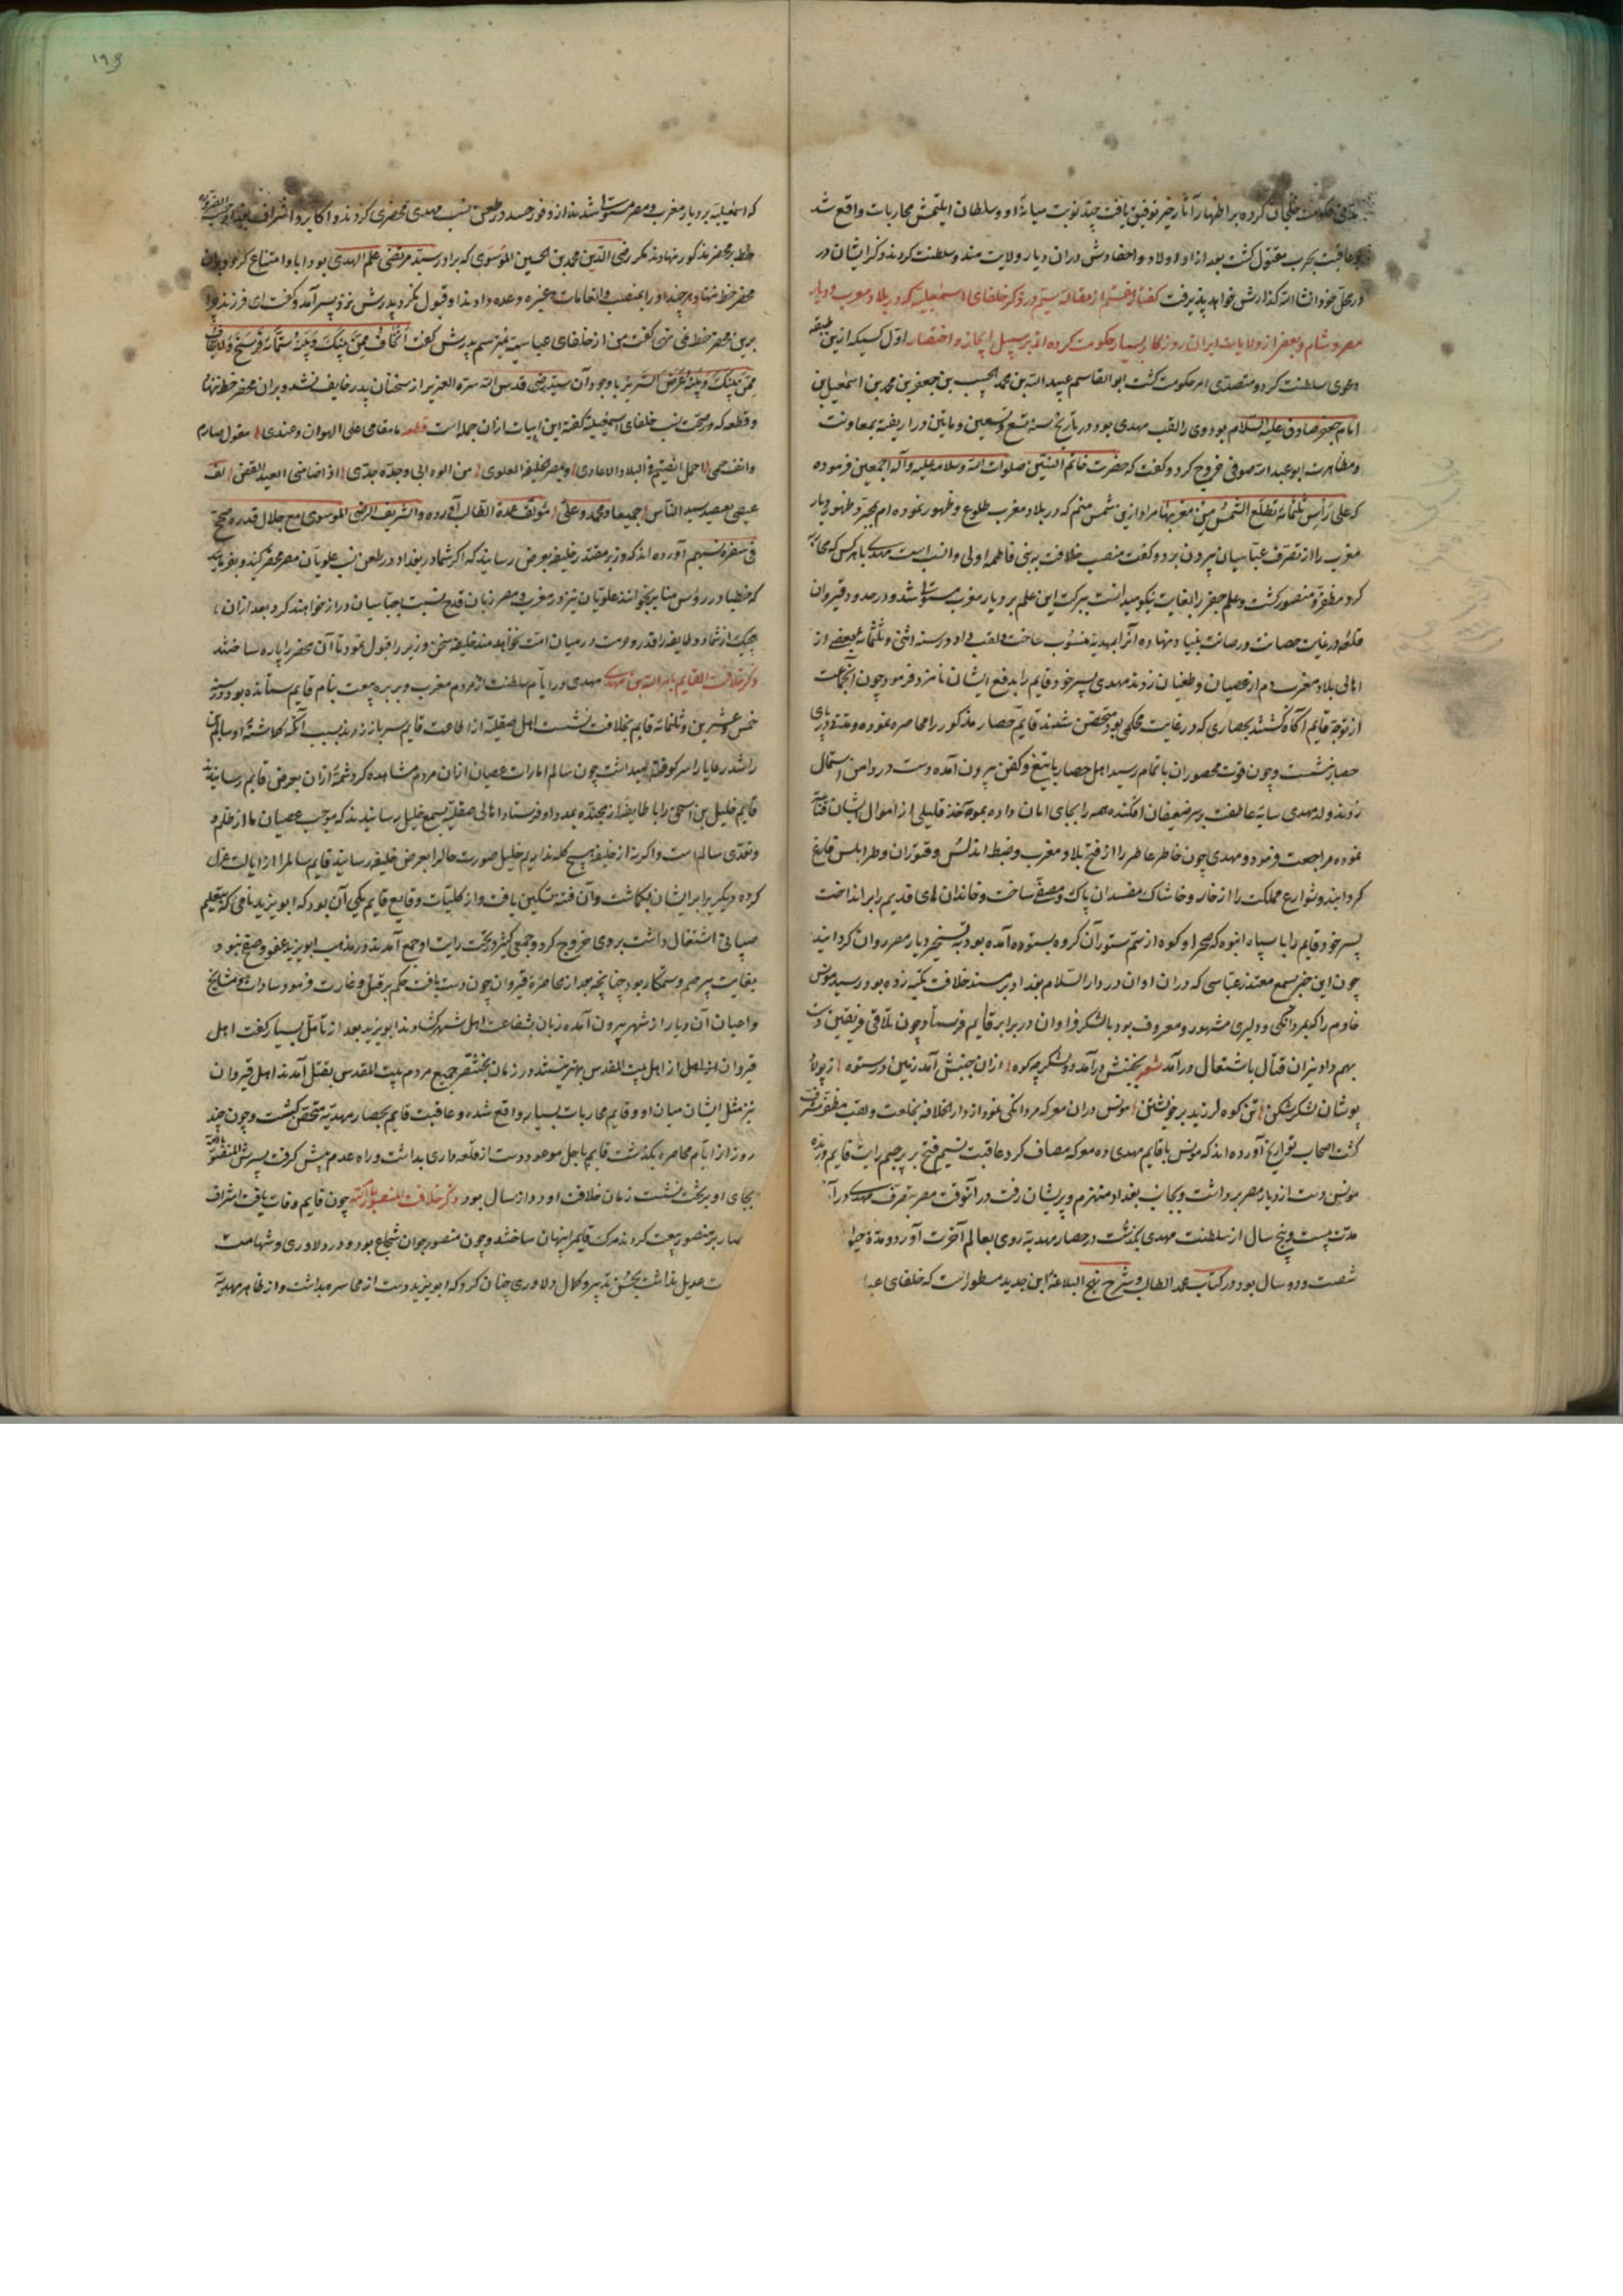 مدتی حکومت خلجان کرده بر اظهار آثار خیر توفیق یافت چند نوبت میانهٔ او و سلطان ایلتمش محاربات واقع شد
و عاقبت بحرب مقتول کشت بعد از او اولاد و احفادش دران دیار ولایت مند و سلطنت کردند و ذکر ایشان در
در محل خود انشا الله کذارش خواهد پذیرفت کفتار هشتم از مقاله سیم در ذکر خلفای اسمعیلیه که در بلاد مغرب و دیار
مصر و شام و بعضی از ولایات ایران روزکار بسیار حکومت کرده اند بر سبیل ایجاز و اختصار اول کسیکه ازین طبقه
دعوی سلطنت کرد و متصدی امر حکومت کشت ابو القاسم عبید الله بن محمد الحبیب بن جعفر بن محمد بن اسمعیل بن
امام جعفر صادق علیه السلام بود و وی را لقب مهدی بود و در تاریخ سنه تسع و تسعین و ماتین در افریقیه بمعاونت
و مظاهرت ابو عبد الله صوفی خروج کرد و کفت که حضرت خاتم النبیین صلوات الله و سلامه علیه و آله اجمعین فرموده
که علی رأس ثلثمائة تطلع الشمس من مغربها مراد ازین شمس منم که در بلاد مغرب طلوع و ظهور نموده ام بجبر و ظهور دیار
مغرب را از تصرف عباسیان بیرون برد و کفت منصب خلافت به بنی فاطمه اولی و انسب است مهدی با هر کس که محاربه
کرد مظفر و منصور کشت و علم جفر را بغایت نیکو میدانست ببرکت این علم بر دیار مغرب مستولی شد و در حدود قیروان
قلعه در غایت حصانت و رصانت بنیاد نهاده آنرا بمهدیه منسوب ساخت و لقب داد و در سنه اثنی و ثلثمائه بعضی از
اهالی بلاد مغرب دم از عصیان و طغیان زدند مهدی پسر خود قایم را بدفع ایشان نامزد فرمود و چون آنجماعت
از توجه قایم آکاه کشتند بحصاری که در غایت محکمی بود متحصن شدند قایم حصار مذکور را محاصره نموده و مدتی در پای
حصار نشست و چون قوت محصوران باتمام رسید اهل حصار با تیغ و کفن بیرون آمده دست در دامن استمال
زدند ولد مهدی سایهٔ عاطفت بر سر ضعیفان افکنده همه را بجای امان داده بمواخذ قلیلی از اموال ایشان قناعت
نموده مراجعت فرمود و مهدی چون خاطر عاطر را از فتح بلاد مغرب و ضبط اندلس و قیروان و طرابلس فارغ
کردانید و شوارع مملکت را از خار و خاشاک مفسدان پاک و مصفی ساخت و خاندان های قدیم را برانداخت
پسر خود قایم را با سپاه انبوه که صحرا و کوه از سم ستور آن کروه بستوه آمده بود بتسخیر دیار مصر روان کردانید
چون این خبر بسمع مقتدر عباسی که دران اوان در دار السلام بغداد بر مسند خلافت تکیه زده بود رسید مونس
خادم را که بمردانکی و دلیری مشهور و معروف بود با لشکر فراوان در برابر قایم فرستاد و چون تلاقی فریقین دست
بهم داد نیران قتال باشتعال درآمد شعر بجنبش درآمد دو لشکر چو کوه از ان جنبش آمد زمین در ستوه ز پولاد
پوشان لشکر شکن تن کوه لرزید بر خویشتن مونس دران معرکه مردانکی نمود از دار الخلافه بخلعت و لقب مظفر مشرف
کشت اصحاب تواریخ آورده اند که مونس با قایم مهدی ده معرکه مصاف کرد عاقبت نسیم فتح بر پرچم رایت قایم وزیده
مونس دست از دیار مصر برداشت و بجانب بغداد منهزم و پریشان رفت در آنوقت مصر بتصرف مهدی درآ
مدت بیست و پنج سال از سلطنت مهدی بکذشت در حصار مهدیه روی بعالم آخرت آورد و مدة حیا
شصت و دو سال بود و در کتاب عمدة الطالب و شرح نهج البلاغه ابن حدید مسطور است که خلفای عبا
۱۹۶
که اسمعیلیه بر دیار مغرب و مصر مستولی شدند از وفور حسد در طعن نسب مهدی محضری کردند و اکابر و اشراف بغداد
خط بر محضر مذکور نهادند مکر رضی الدین محمد بن الحسین الموسوی که برادر سید مرتضی علم الهدی بود ابا و امتناع کرد و بران
محضر خط ننهاد هر چند او را بمنصب و انعامات و غیره وعده دادند او قبول نکرد پدرش نزد پسر آمد و کفت ای فرزند چرا
برین محضر خط نمی نهی کفت من از خلفای عباسیه نمیترسم پدرش کفت اتخاف ممن بینک و بینه ستمائة فرسخ و لاتخاف
ممن بینک و بینه عرض السریر با وجود آن سید رضی قدس الله سره العزیز از سخنان پدر خایف نشد و بران محضر خط ننها
و قطعه که در صحت نسب خلفای اسمعیلیه کفته این ابیات از ان جمله است قطعه ما مقامی علی الهوان و عندی مقول صارم
وانف حمی احمل الضیم فی البلاد الاعادی وبمصر الخلیفة العلوی من ابوه ابی وجده جدی اذا ضامنی البعید القصی لف
عرقی بعرقه سید الناس جمیعا محمد وعلی مولف عمدة الطالب آورده و الشریف الرضی الموسوی مع جلال قدره صحح
فی شعره نسبهم آورده اند که وزیر مقتدر خلیفه بعرض رسانید که اکر شما در بغداد در طعن نسب علویان مصر محضر کنید و بفرمایید
که خطبا در رؤس منابر بخوانند علویان نیز در مغرب و مصر زبان قدح نسبت بعباسیان دراز خواهند کرد بعد ازان
هیچیک از شما دو طایفه را قدر و حرمت در میان امت نخواهد ماند خلیفه سخن وزیر را قبول نمود تا آن محضر را پاره ساختند
ذکر خلافت القایم بامر الله بن مهدی مهدی در ایام سلطنت از مردم مغرب و بربر بیعت بنام قایم ستانده بود در سنه
خمس و عشرین و ثلثمائه قایم بخلافت نشست اهل صقلیه از اطاعت قایم سر باز زدند بسبب آنکه کماشتهٔ او سالم بن
راشد رعایا را سرکوفته میداشت چون سالم امارات عصیان ازان مردم مشاهده کرد شمهٔ ازان بعرض قایم رسانید
قایم خلیل بن اسحق را با طایفهٔ از جنده بمدد او فرستاد اهالی صقلیه بسمع خلیل رسانیدند که موجب عصیان ما از ظلم و
و تعدی سالم است و اکر نه از خلیفه هیچ کله نداریم خلیل صورت حال را بعرض خلیفه رسانید قایم سالم را از ایالت عزل
کرده دیکری را بر ایشان بکماشت و آن فتنه تسکین یافت و از کلیات وقایع قایم یکی آن بود که ابو یزید نامی که بتعلیم
صبیانی اشتغال داشت بر وی خروج کرد و جمعی کثیر در تحت رایت او جمع آمدند و در مذهب ابو یزید عفو و صفح نبود
بغایت بیرحم و ستمکار بود چنانچه بعد از محاصرهٔ قیروان چون دست یافت حکم بر قتل و غارت فرمود سادات و مشایخ
و اعیان آن دیار از شهر بیرون آمده زبان بشفاعت اهل شهر کشادند ابو یزید بعد از تأمل بسیار کفت اهل
قیروان از اهل بیت المقدس بهتر نیستند در زمان بختنصر جمیع مردم بیت المقدس بقتل آمدند اهل قیروان
نیز مثل ایشان میان او و قایم محاربات بسیار واقع شده و عاقبت قایم بحصار مهدیه متحصن کشت و چون چند
روز از ایام محاصره بکذشت قایم باجل موعود دست از قلعه داری بداشت و راه عدم پیش کرفت پسرش المنصور
بجای او بر تخت نشست زمان خلافت او دوازده سال بود ذکر خلافت المنصور بالله چون قایم وفات یافت اشراف
بر منصور بیعت کردند مرک قایم را پنهان ساختند و چون منصور جوان شجاع بود و در دلاوری و شهامت
عدیل نداشت بحسن تدبیر و کمال دلاوری چنان کرد که ابو یزید دست از محاصره بداشت و از ظاهر مهدیه